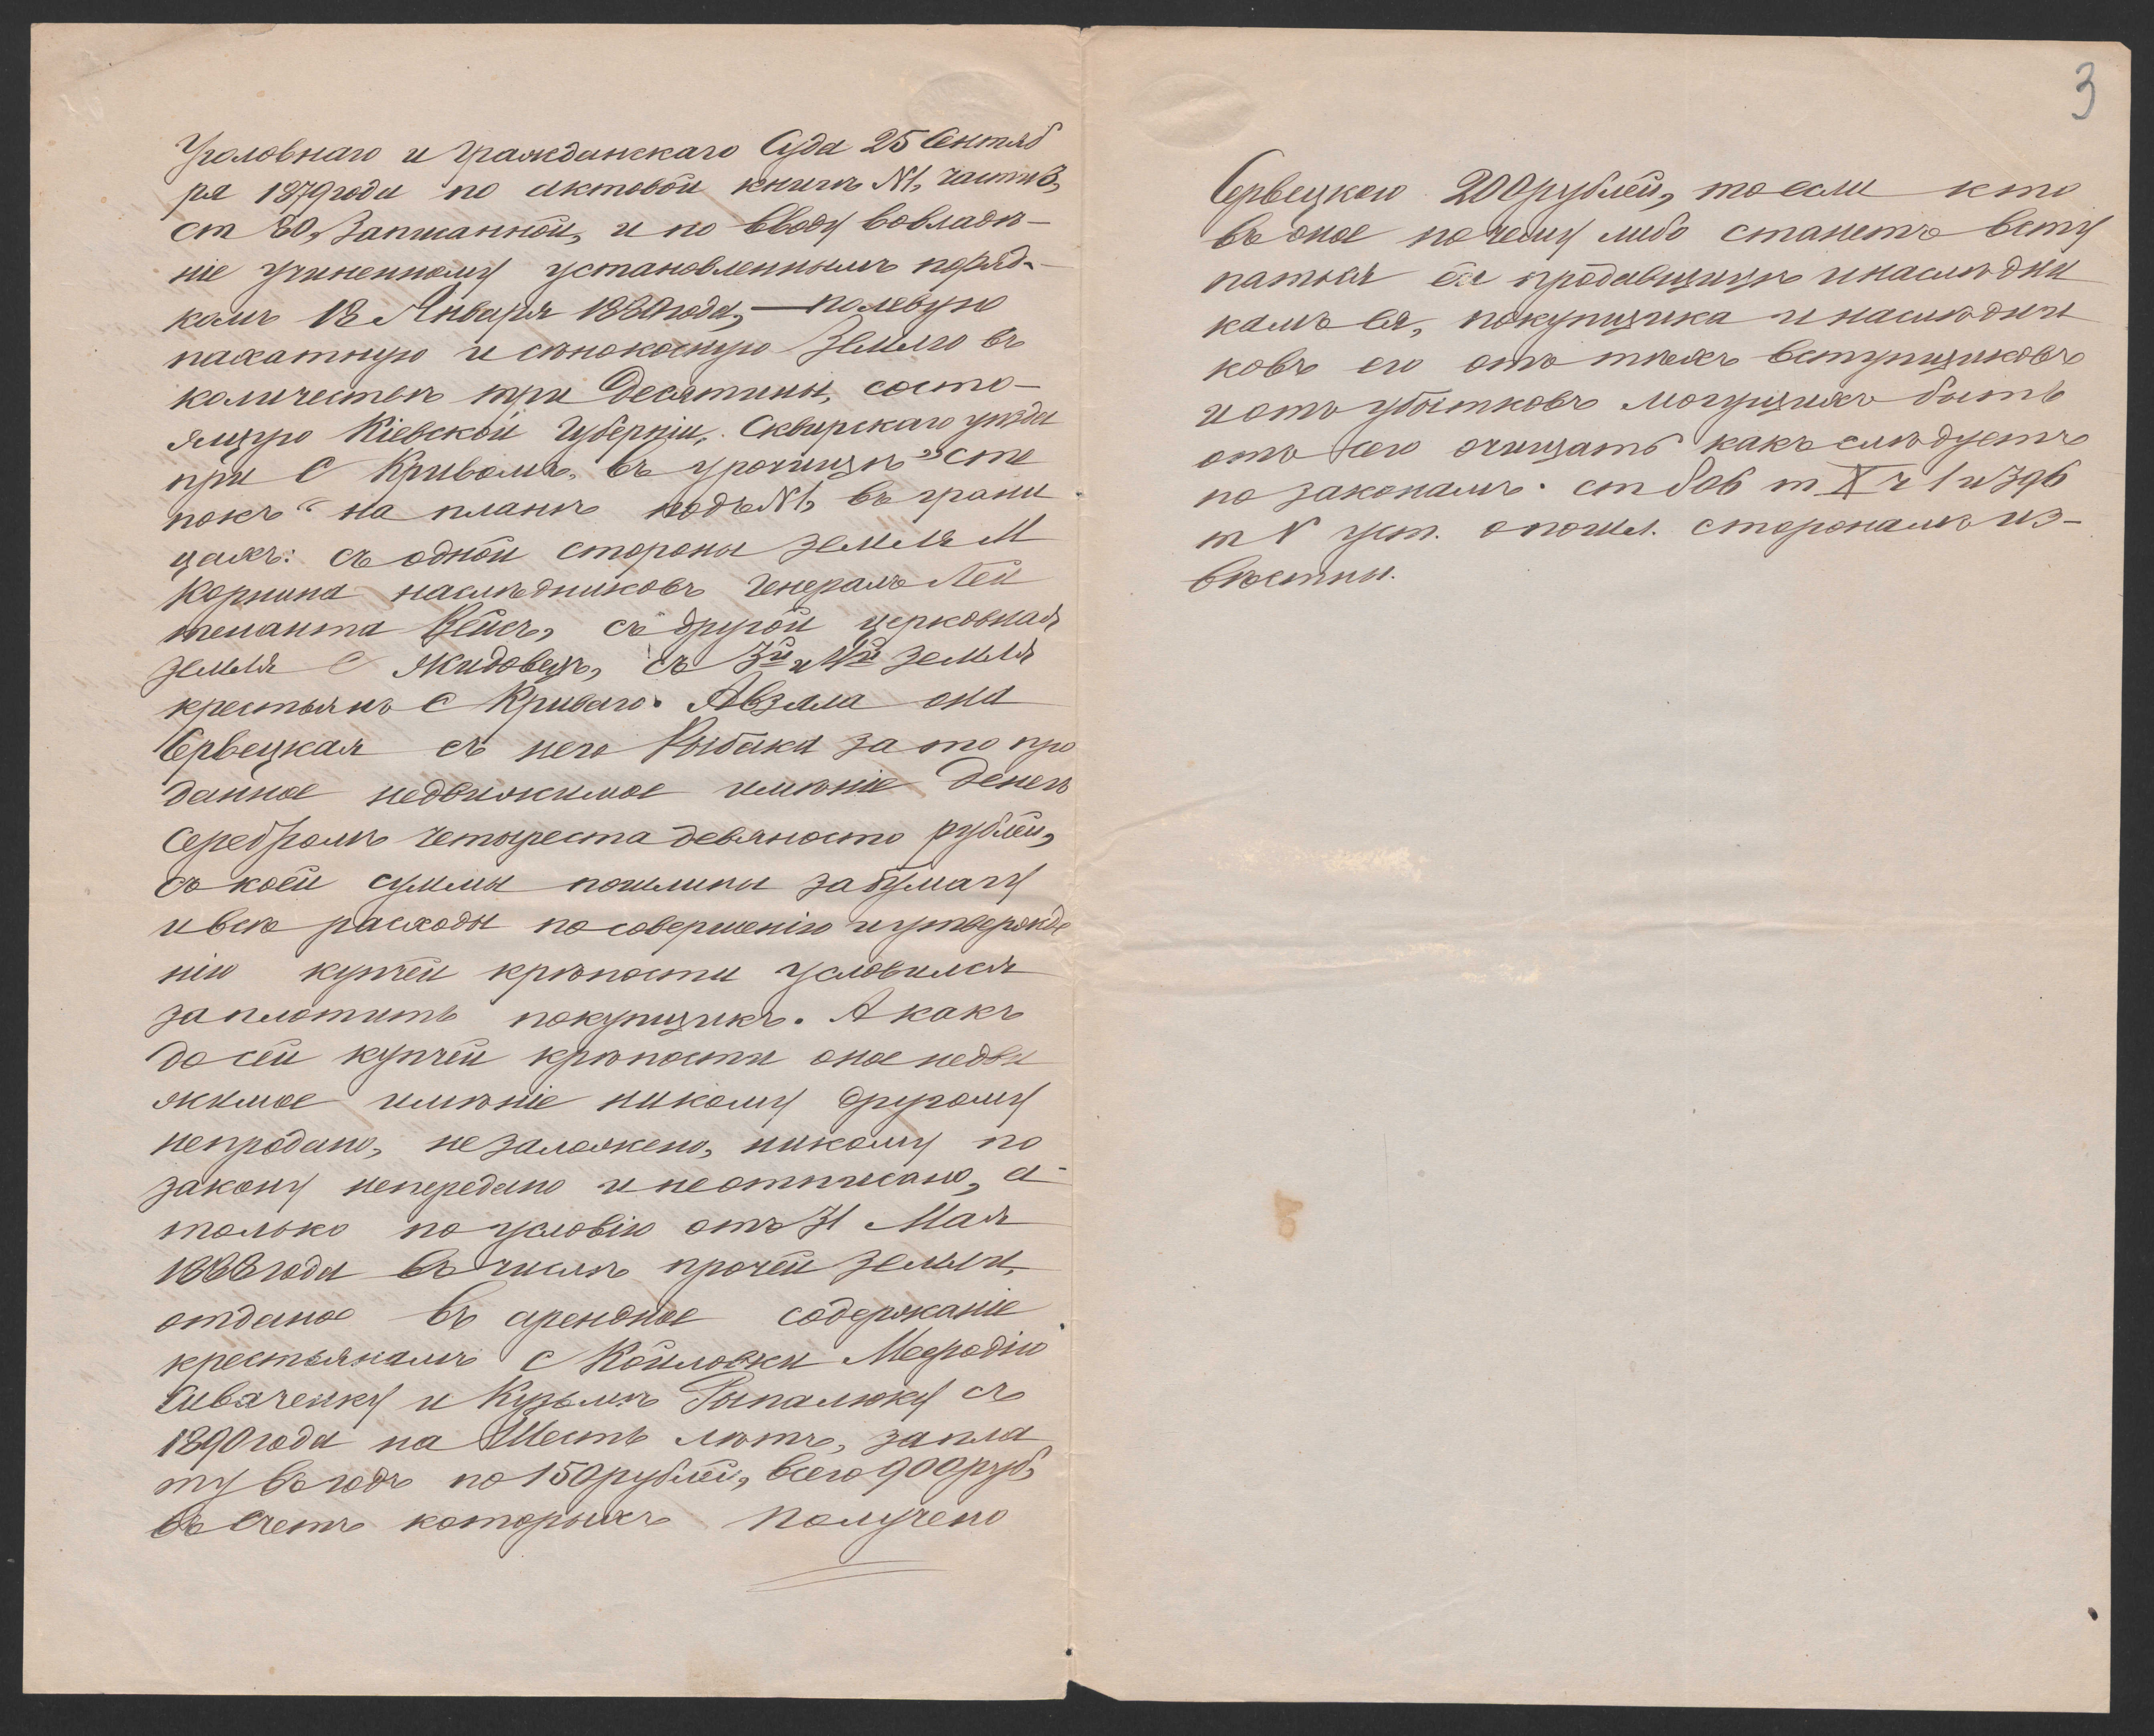 Уголовнаго и Гражданскаго Суда 25 Сентяб
ря 1879 года по актовой книгѣ №1, части 3,
ст 80, записанной, и по вводу вовладѣ-
ніе учиненному установленнымъ поряд-
комъ 18 Января 1880 года, — полевую
пахатную и сѣнокосную Землю въ
количествѣ три Десятины, состо-
ящую Кіевской Губерніи, Сквирскаго уѣзда
при С Кривомъ, въ урочищѣ „сте
покъ“ на планѣ подъ №1, въ грани
цахъ: съ одной стороны земля М
Корнина наслѣдниковъ Генералъ Лей
тенанта Рейсъ, съ другой церковная
земля С Жидовецъ, съ 3й и 4й земля
крестьянъ С Криваго. Авзяла она
Сервецкая съ него Рыбака за то про
данное недвижимое имѣніе Денегъ
Серебромъ Четыреста девяносто рублей,
съ коей суммы пошлины забумагу
ивсѣ расходы посовершенію иутвержде
нію купчей крѣпости условился
заплотить покупщикъ. А какъ
до сей купчей крѣпости оное недви
жимое имѣніе никому другому
непродано, не заложено, никому по
закону непередано и неотписано, а
только по условію отъ 31 Мая
1888 года въ числѣ прочей земли,
отданое въ арендное содержаніе
крестьянамъ С Койловки Мефодію
Сиваченку и Кузьмѣ Рыпалюку съ
1890 года на Шесть лѣтъ, запла
ту въ годъ по 150 рублей, всего 900 руб,
въ счетъ которыхъ получено
3
Сервецкою 200 рублей, то если кто
въ оное почему либо станетъ всту
паться ея продавщицѣ инаслѣдни
камъ ея, покупщика и наслѣдни
ковъ его отъ тѣхъ вступщиковъ
и отъ убытковъ могущихъ быть
отъ сего очищать какъ слѣдуетъ
по законамъ. ст 806 т X ч 1 и 396
т V уст. о пошл. сторонамъ из-
вѣстны.